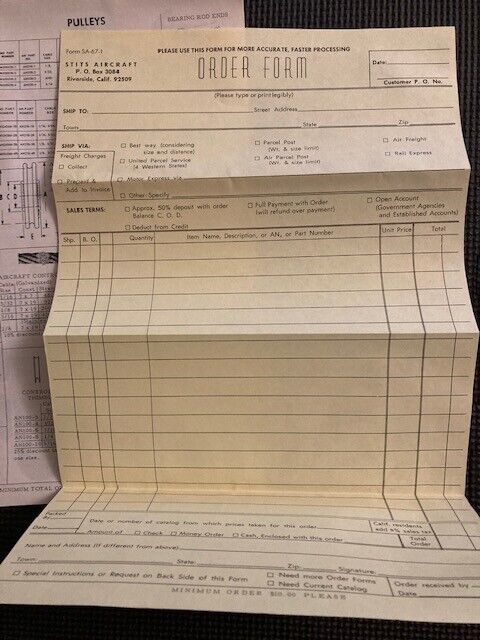 PULLEYS
BEARING ROD ENDS
Form SA-67-1
PLEASE USE THIS FORM FOR MORE ACCURATE, FASTER PROCESSING
STITS AIRCRAFT
P. O. Box 3084
Riverside, Calif. 92509
ORDER FORM
Date:
Customer P. O. No.
(Please type or print legibly)
SHIP TO: Street Address
Town State Zip
SHIP VIA:
Freight Charges
Collect
Prepaid &
Add to Invoice
Best way (considering
size and distance)
United Parcel Service
(4 Western States)
Motor Express via
Other-Specify
Parcel Post
(Wt. & size limit)
Air Parcel Post
(Wt. & size limit)
Air Freight
Rail Express
SALES TERMS:
Approx. 50% deposit with order
Balance C. O. D.
Deduct from Credit
Full Payment with Order
(will refund over payment)
Open Account
(Government Agencies
and Established Accounts)
Shp. B. O. Quantity Item Name, Description, or AN, or Part Number Unit Price Total
AIRCRAFT CONTR
Cable (Galvanized)
Size Const.
CONTRO
THIM
AN100-3
AN100-4
AN100-5
AN100-6
AN100-8
25% discount
one size.
MINIMUM TOTAL O
Packed
By
Date
Date or number of catalog from which prices taken for this order
Calif. residents
add 5% sales tax
Amount of Check Money Order Cash, Enclosed with this order
Total
Order
Name and Address (If different from above)
Town: State: Zip Signature:
Special Instructions or Request on Back Side of this Form
Need more Order Forms
Need Current Catalog
Order received by
Date
MINIMUM ORDER $10.00 PLEASE